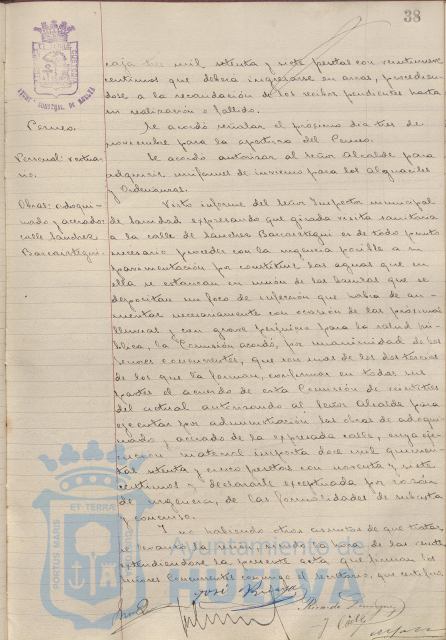 38
caja tres mil setenta y siete pesetas con veintinueve
centimos que deberá ingresarse en arcas, procedien-
dose a la recaudación de los recibos pendientes hasta
su realización o fallido.
Censo.
Se acordó señalar el proximo dia tres de
noviembre para la apertura del Censo.
Personal: vestua-
rio.
Se acordó autorizar al Señor Alcalde para
adquirir uniformes de invierno para los Alguaciles
y Ordenanzas.
Obras: adoqui-
nado y acerado:
calle Sanchez
Barcaiztegui.
Visto informe del Señor Inspector municipal
de Sanidad expresando que girada visita sanitaria
a la calle de Sanchez Barcaiztegui es de todo punto
necesario proceder con la urgencia posible a su
pavimentación por constituir las aguas que en
ella se estancan en unión de las basuras que se
depositan un foco de infección que habrá de au-
mentar necesariamente con ocasión de las proximas
lluvias y con grave perjuicio para la salud pú-
blica, la Comisión acordó, por unanimidad de los
Señores concurrentes, que son mas de los dos tercios
de los que la forman, confirmar en todas sus
partes el acuerdo de esta Comisión de veintitres
del actual autorizando al Señor Alcalde para
ejecutar por administración las obras de adoqui-
nado y acerado de la expresada calle, cuya eje-
cucion material importa doce mil quinien-
tas setenta y cinco pesetas con noventa y siete
centimos y declararle exceptuada por razón
de urgencia, de las formalidades de subasta
y concurso.
Y no habiendo otros asuntos de que tratar,
se levantó la sesión siendo la hora de las
extendiendose la presente acta que firman los
Señores Concurrentes conmigo el Secretario, que certifico.
José
Ayuntamiento de
HUELVA
PORTUS MARIS ET TERRAE CUSTODIA